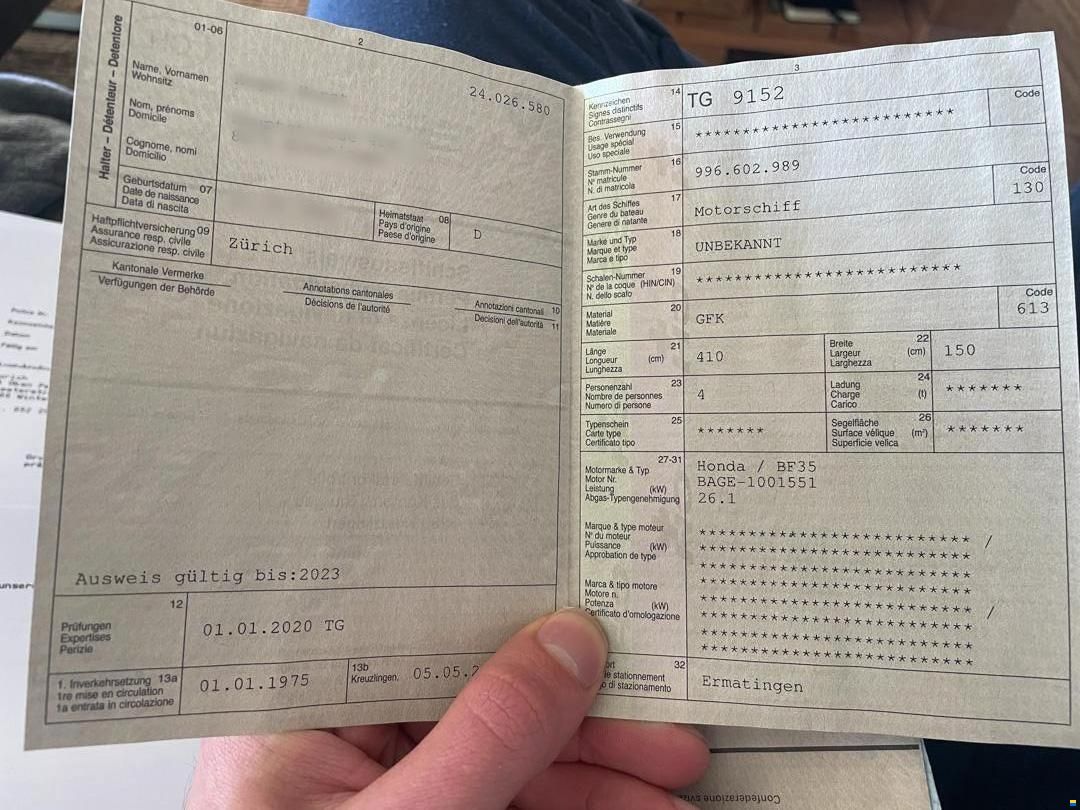 Halter – Détenteur – Detentore
01-06
2
Name, Vornamen
Wohnsitz
Nom, prénoms
Domicile
Cognome, nomi
Domicilio
24.026.580
Geburtsdatum 07
Date de naissance
Data di nascita
Heimatstaat 08
Pays d'origine
Paese d'origine
D
Haftpflichtversicherung 09
Assurance resp. civile
Assicurazione resp. civile
Zürich
Kantonale Vermerke
Verfügungen der Behörde
Annotations cantonales
Décisions de l'autorité
Annotazioni cantonali 10
Decisioni dell'autorità 11
Ausweis gültig bis:2023
12
Prüfungen
Expertises
Perizie
01.01.2020 TG
1. Inverkehrsetzung 13a
1re mise en circulation
1a entrata in circolazione
01.01.1975
13b
Kreuzlingen,
05.05.2
3
Kennzeichen 14
Signes distinctifs
Contrassegni
TG 9152
Code
Bes. Verwendung 15
Usage spécial
Uso speciale
************************
Stamm-Nummer 16
N° matricule
N. di matricola
996.602.989
Art des Schiffes 17
Genre du bateau
Genere di natante
Motorschiff
Code
130
Marke und Typ 18
Marque et type
Marca e tipo
UNBEKANNT
Schalen-Nummer 19
N° de la coque (HIN/CIN)
N. dello scafo
************************
Material 20
Matière
Materiale
GFK
Code
613
Länge 21
Longueur (cm)
Lunghezza
410
Breite 22
Largeur (cm)
Larghezza
150
Personenzahl 23
Nombre de personnes
Numero di persone
4
Ladung 24
Charge (t)
Carico
*******
Typenschein 25
Carte type
Certificato tipo
*******
Segelfläche 26
Surface vélique (m²)
Superficie velica
*******
27-31
Motormarke & Typ
Motor Nr.
Leistung (kW)
Abgas-Typengenehmigung
Honda / BF35
BAGE-1001551
26.1
Marque & type moteur
N° du moteur
Puissance (kW)
Approbation de type
************************ /
************************
************************
************************
Marca & tipo motore
Motore n.
Potenza (kW)
Certificato d'omologazione
************************ /
************************
************************
************************
32
stationnement
di stazionamento
Ermatingen
Confederazione